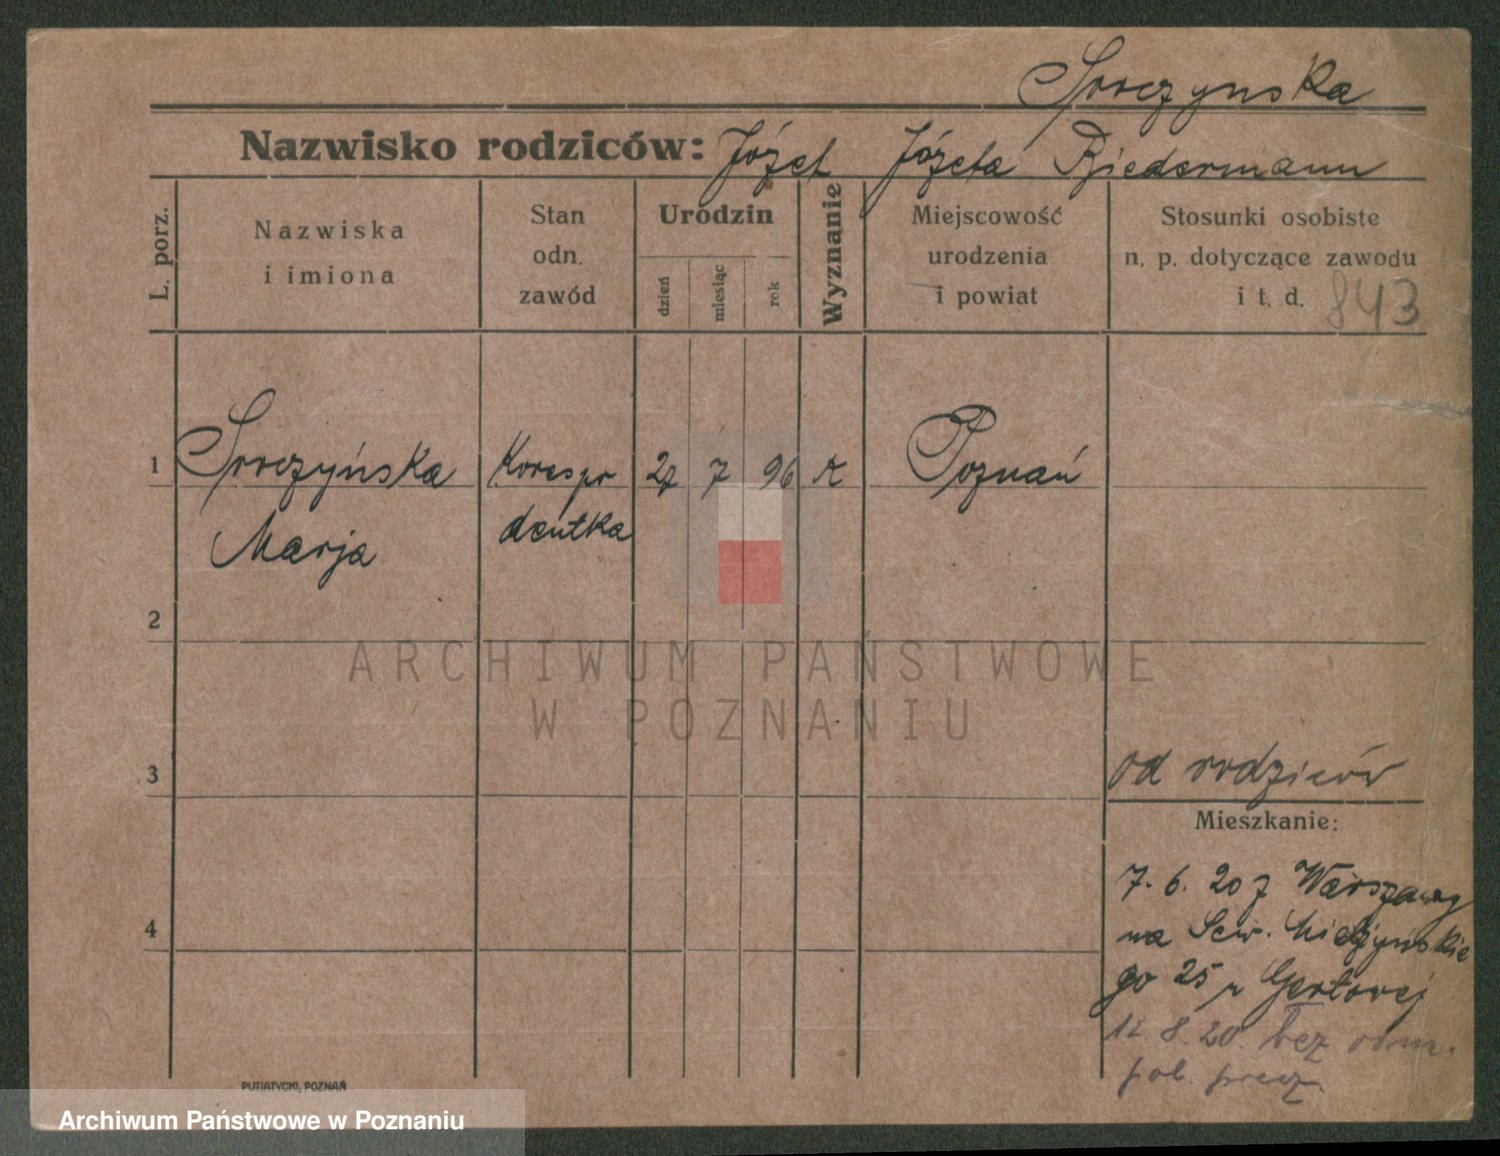 Sroczynska
Nazwisko rodziców: Józef Józefa Biedermann
L. porz.
Nazwiska
i imiona
Stan
odn.
zawód
Urodzin
dzień
miesiąc
rok
Wyznanie
Miejscowość
urodzenia
i powiat
Stosunki osobiste
n. p. dotyczące zawodu
i t. d. 843
1 Sroczyńska Korespn 27 7 96 k Poznań
Marja dentka
2
ARCHIWUM PAŃSTWOWE
W POZNANIU
3
od rodziców
Mieszkanie:
7. 6. 20 z Warszawy
4
na Sew. Mielżyńskie
go 25 u Gertowej
12 8. 20. bez odm.
pol. przez.
PUTIATYCKI, POZNAŃ
Archiwum Państwowe w Poznaniu